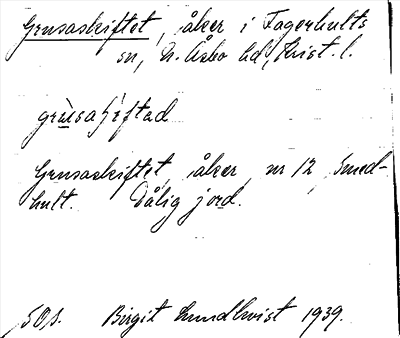 Grusaskiftet, åker i Fagerhults
sn, N. Åsbo hd, Krist. l.
grusaʃiftad
Grusaskiftet, åker, nr 12 Smed-
hult. Dålig jord.
SOf. Birgit Lundkvist 1939.